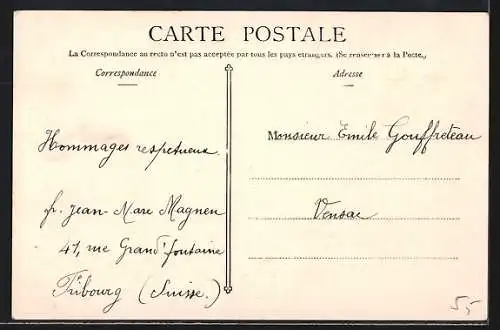 CARTE POSTALE
La Correspondance au recto n'est pas acceptée par tous les pays étrangers. (Se renseigner à la Poste.)
Correspondance
Adresse
Hommages respectueux.
fr. Jean-Marc Magnen
41, rue Grand'fontaine
Fribourg (Suisse.)
Monsieur Emile Gouffreteau
Vensac
55